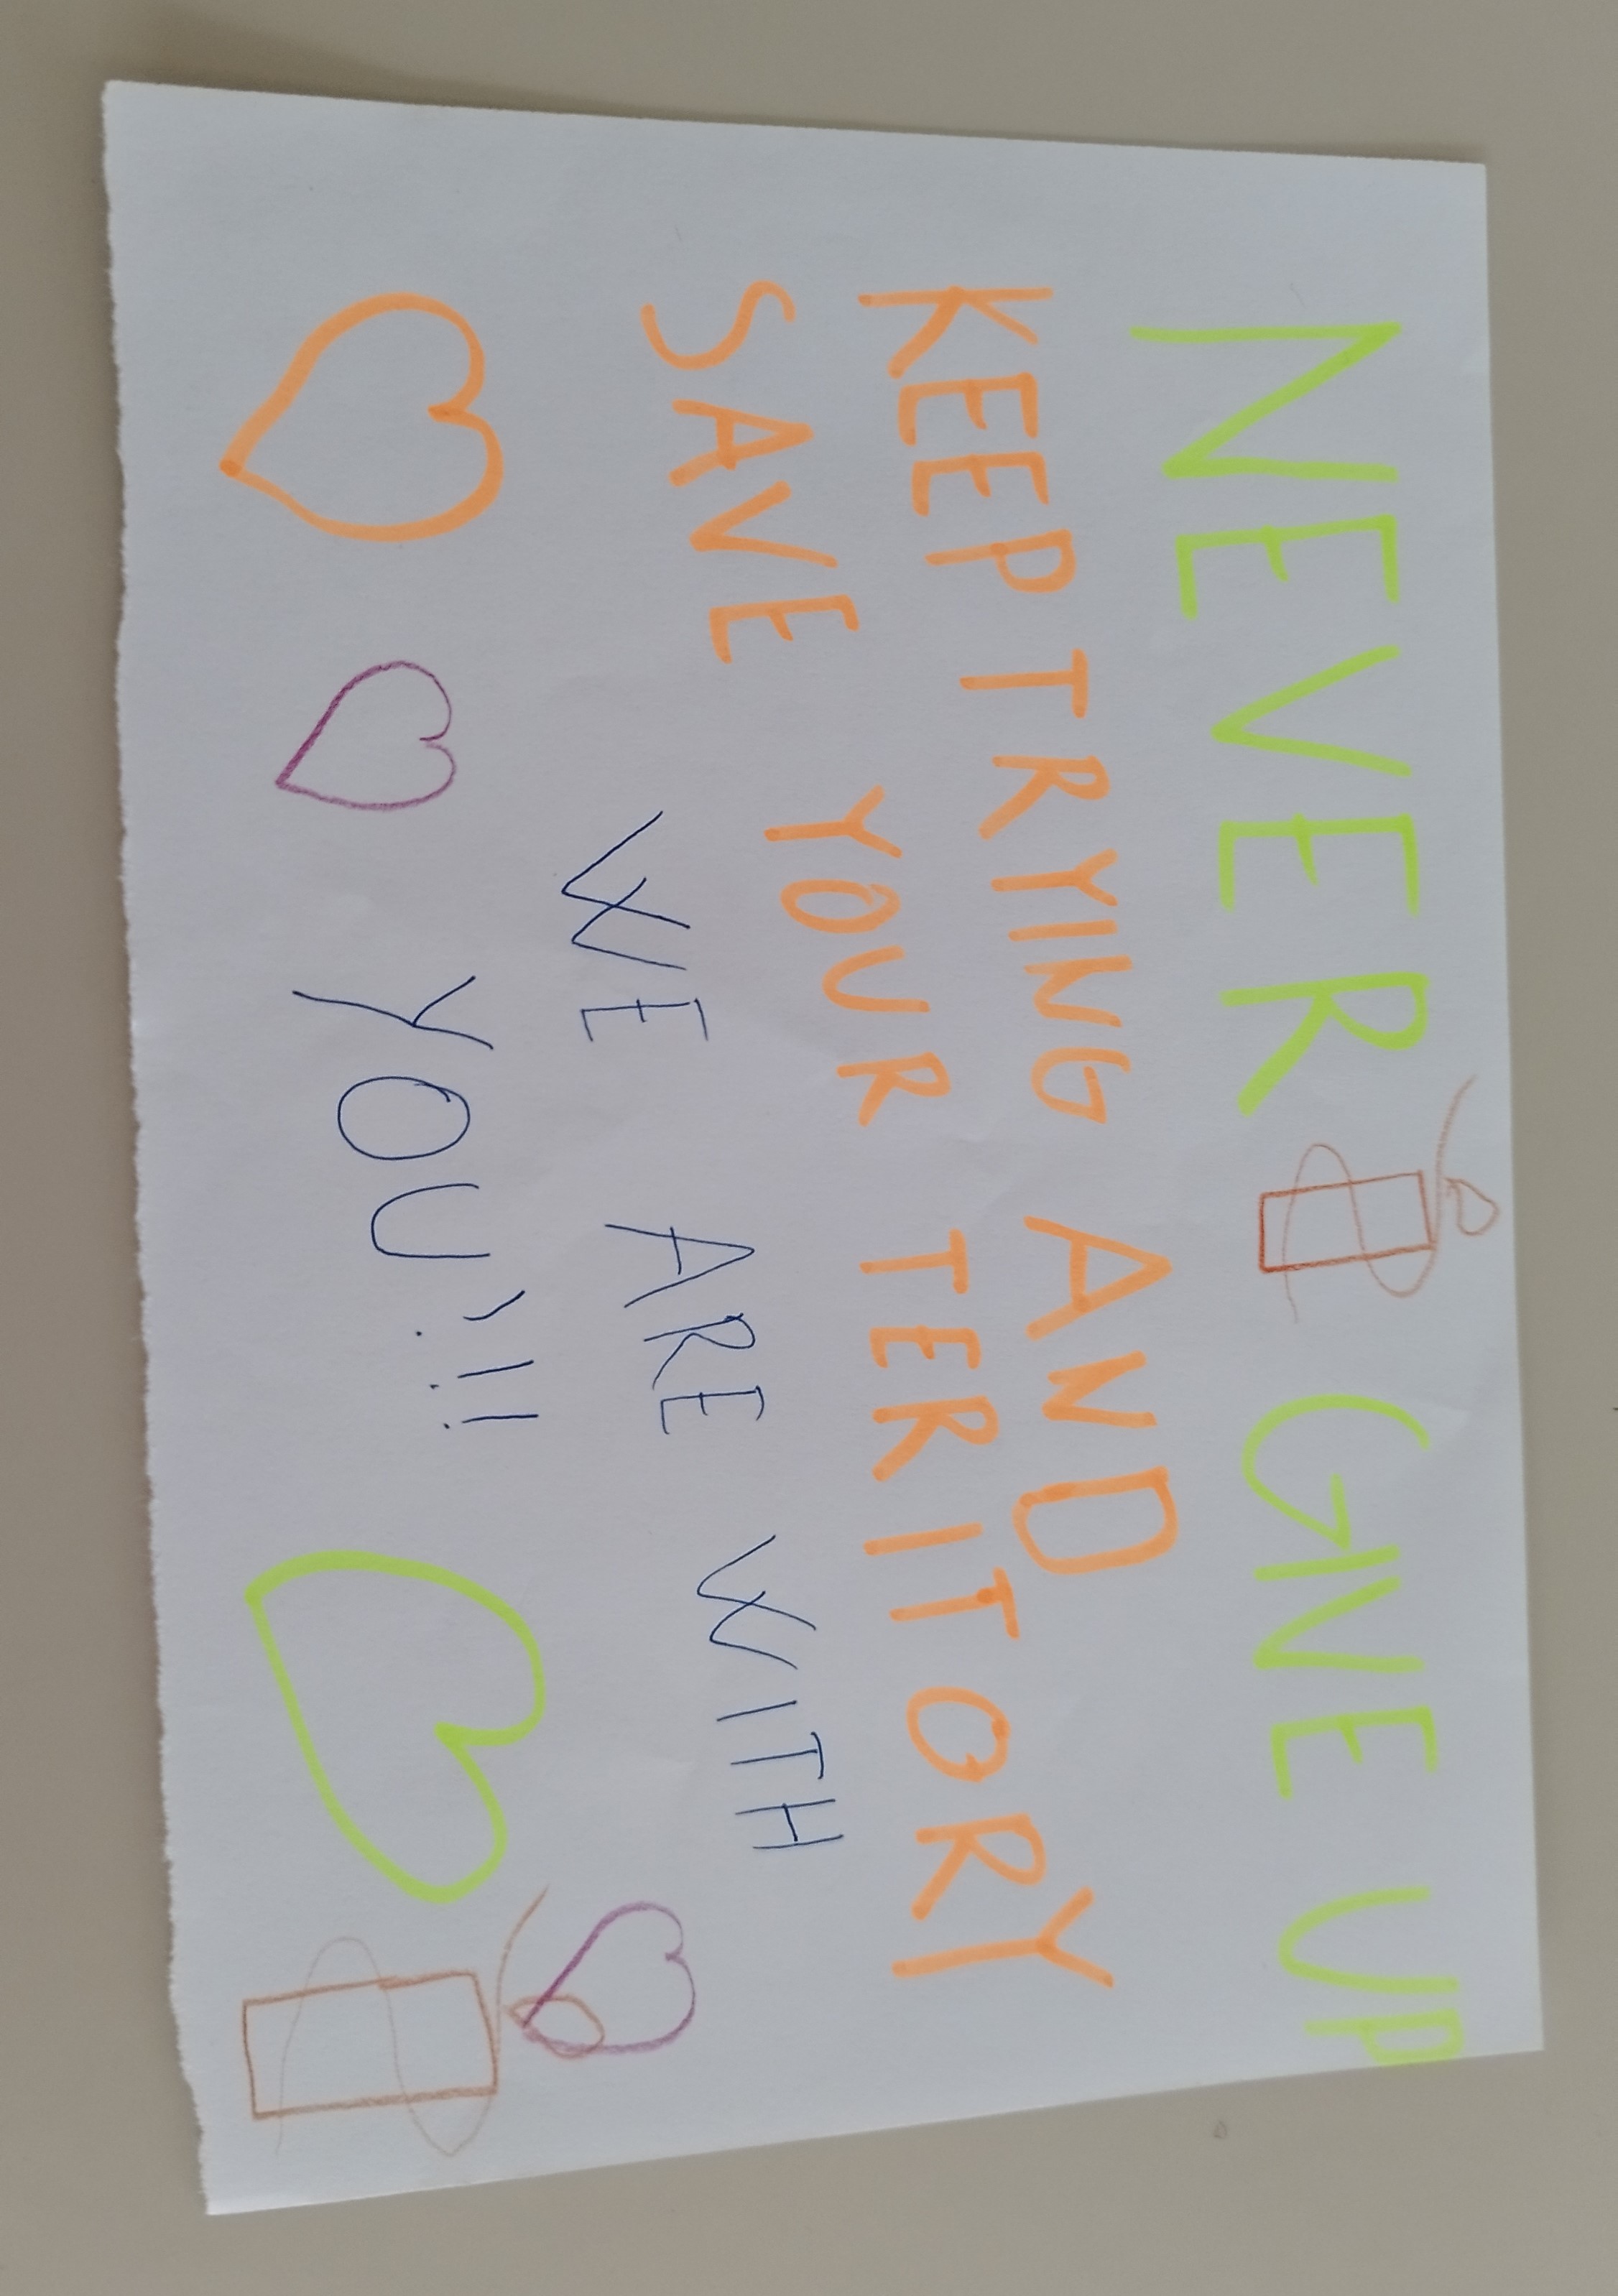 NEVER GIVE UP
KEEP TRYING AND
SAVE YOUR TERITORY
WE ARE WITH
YOU!!!